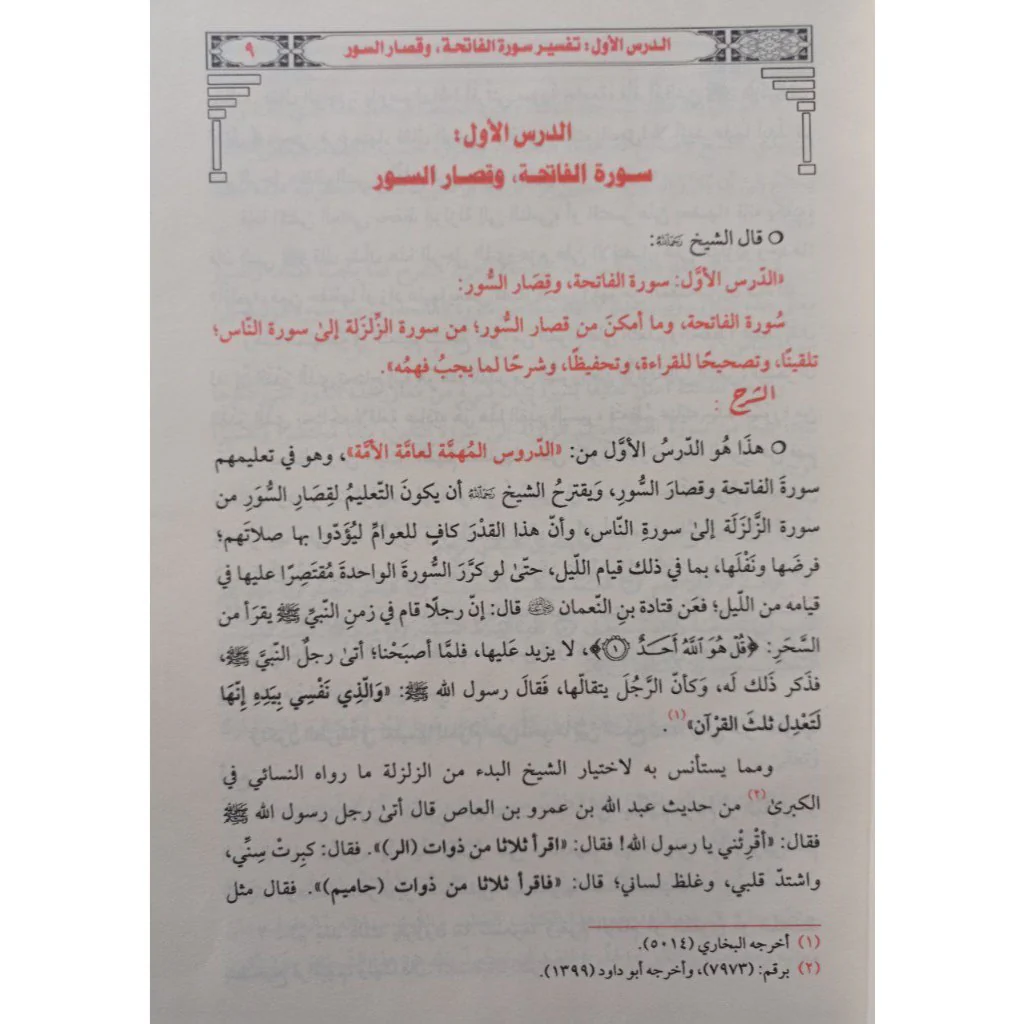 الدرس الأول: تفسير سورة الفاتحة، وقصار السور
٩
الدرس الأول:
سورة الفاتحة، وقصار السور
قال الشيخ رَحِمَهُ ٱللَّهُ:
«الدّرس الأوَّل: سورة الفاتحة، وقِصَار السُّور:
سُورة الفاتحة، وما أمكنَ من قصار السُّور؛ من سورة الزِّلزلَة إلىٰ سورة النَّاس؛
تلقينًا، وتصحيحًا للقراءة، وتحفيظًا، وشرحًا لما يجبُ فهمُه».
الشرح :
هذَا هُو الدّرسُ الأوَّل من: «الدّروس المُهمَّة لعامَّة الأمَّة»، وهو في تعليمهم
سورةَ الفاتحة وقصارَ السُّورِ، وَيقترحُ الشيخ رَحِمَهُ ٱللَّهُ أن يكونَ التّعليمُ لقِصَارِ السُّوَرِ من
سورة الزَّلزَلَة إلىٰ سورةِ النَّاس، وأنّ هذا القدْرَ كافٍ للعوامِّ ليُؤَدّوا بها صلاتَهم؛
فرضَها ونَفْلَها، بما في ذلك قيام اللّيل، حتّىٰ لو كرَّرَ السُّورةَ الواحدةَ مُقتَصِرًا عليها في
قيامه من اللّيل؛ فعَن قتادة بنِ النّعمان رَضِيَ ٱللَّهُ عَنْهُ قال: إنّ رجلًا قام في زمنِ النّبيِّ ﷺ يقرَأ من
السَّحَرِ: ﴿قُلْ هُوَ ٱللَّهُ أَحَدٌ ۝١﴾، لا يزيد عَليها، فلمَّا أصبَحْنا؛ أتىٰ رجلٌ النّبيَّ ﷺ،
فذَكر ذَلك لَه، وَكأنّ الرَّجُلَ يتقالّها، فَقالَ رسول الله ﷺ: «وَالّذِي نَفْسِي بِيَدِهِ إنّهَا
لَتَعْدِل ثلثَ القرْآن»(١).
ومما يستأنس به لاختيار الشيخ البدء من الزلزلة ما رواه النسائي في
الكبرىٰ(٢) من حديث عبد الله بن عمرو بن العاص قال أتىٰ رجل رسول الله ﷺ
فقال: «أقْرِئْني يا رسول الله! فقال: «اقرأ ثلاثا من ذوات (الر)». فقال: كبِرتْ سِنِّي،
واشتدّ قلبي، وغلظ لساني؛ قال: «فاقرأ ثلاثا من ذوات (حاميم)». فقال مثل
(١) أخرجه البخاري (٥٠١٤).
(٢) برقم: (٧٩٧٣)، وأخرجه أبو داود (١٣٩٩).